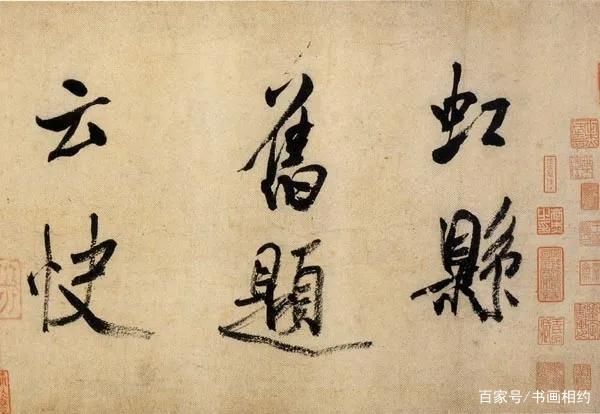 虹縣
舊題
云快
百家号/书画相约